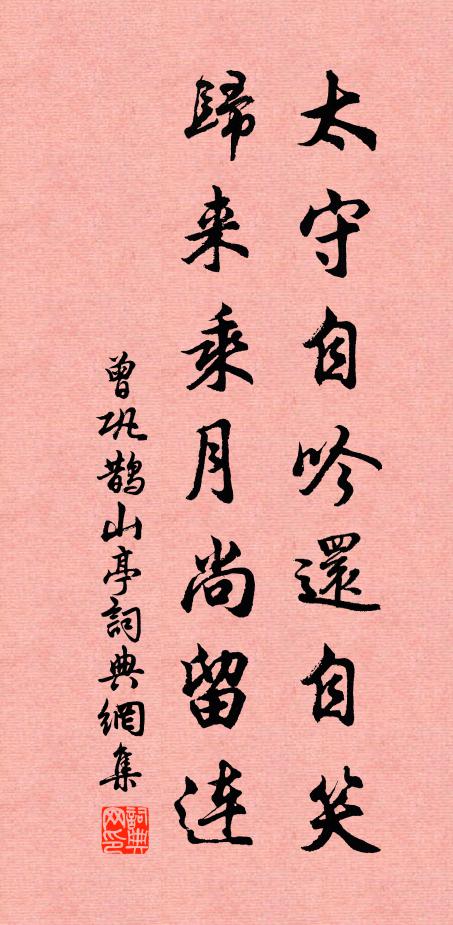 太守自吟還自笑
歸来乘月尚留连
曾巩鵲山亭詞典網集
詞典网印